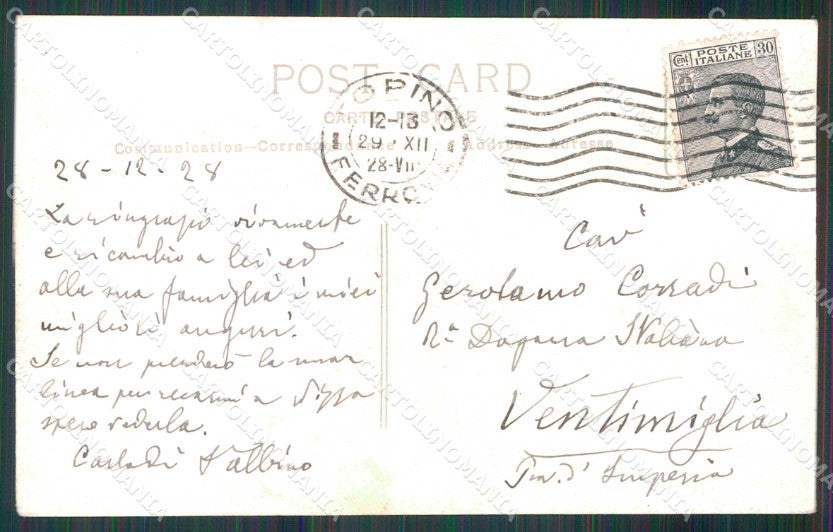 POST CARD
CARTE POSTALE
Communication—Correspondance Address—Adresse
TORINO
12-13
29 · XII
28-VII
FERROVIA
Cent POSTE ITALIANE 30
28-12-28
La ringrazio vivamente
e ricambio a lei ed
alla sua famiglia i miei
migliori auguri.
Se non prenderò la
linea per recarmi a Nizza
spero vederla.
Cav'
Gerolamo Corradi
Rª Dogana Italiana
Ventimiglia
Prov. d' Imperia
CARTOLINOMANIA